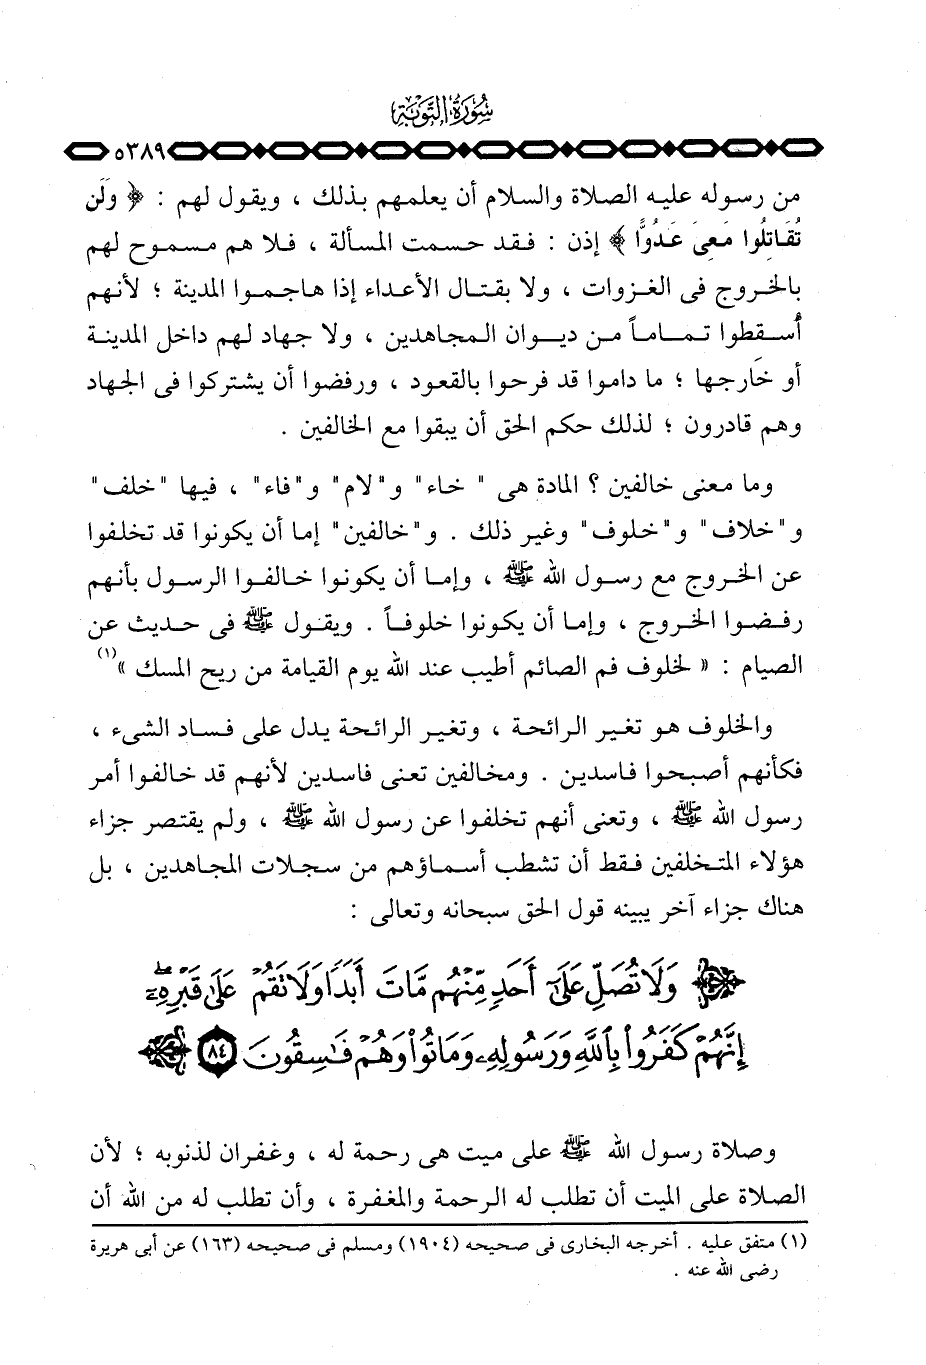 سُورَةُ التَّوْبَةِ
٥٣٨٩
من رسوله عليه الصلاة والسلام أن يعلمهم بذلك ، ويقول لهم : ﴿ وَلَن
تُقَاتِلُوا مَعِيَ عَدُوًّا ﴾ إذن : فقد حسمت المسألة ، فلا هم مسموح لهم
بالخروج فى الغزوات ، ولا بقتال الأعداء إذا هاجموا المدينة ؛ لأنهم
أُسقطوا تماماً من ديوان المجاهدين ، ولا جهاد لهم داخل المدينة
أو خارجها ؛ ما داموا قد فرحوا بالقعود ، ورفضوا أن يشتركوا فى الجهاد
وهم قادرون ؛ لذلك حكم الحق أن يبقوا مع الخالفين .
وما معنى خالفين ؟ المادة هى " خاء" و"لام" و"فاء" ، فيها "خلف"
و"خلاف" و"خلوف" وغير ذلك . و"خالفين" إما أن يكونوا قد تخلفوا
عن الخروج مع رسول الله ﷺ ، وإما أن يكونوا خالفوا الرسول بأنهم
رفضوا الخروج ، وإما أن يكونوا خلوفاً . ويقول ﷺ فى حديث عن
الصيام : « لخلوف فم الصائم أطيب عند الله يوم القيامة من ريح المسك »(١)
والخلوف هو تغير الرائحة ، وتغير الرائحة يدل على فساد الشىء ،
فكأنهم أصبحوا فاسدين . ومخالفين تعنى فاسدين لأنهم قد خالفوا أمر
رسول الله ﷺ ، وتعنى أنهم تخلفوا عن رسول الله ﷺ ، ولم يقتصر جزاء
هؤلاء المتخلفين فقط أن تشطب أسماؤهم من سجلات المجاهدين ، بل
هناك جزاء آخر يبينه قول الحق سبحانه وتعالى :
وَلَا تُصَلِّ عَلَىٰٓ أَحَدٍ مِّنْهُم مَّاتَ أَبَدًا وَلَا تَقُمْ عَلَىٰ قَبْرِهِۦٓ ۖ
إِنَّهُمْ كَفَرُوا۟ بِٱللَّهِ وَرَسُولِهِۦ وَمَاتُوا۟ وَهُمْ فَـٰسِقُونَ ٨٤
وصلاة رسول الله ﷺ على ميت هى رحمة له ، وغفران لذنوبه ؛ لأن
الصلاة على الميت أن تطلب له الرحمة والمغفرة ، وأن تطلب له من الله أن
(١) متفق عليه . أخرجه البخارى فى صحيحه (١٩٠٤) ومسلم فى صحيحه (١٦٣) عن أبى هريرة
رضى الله عنه .